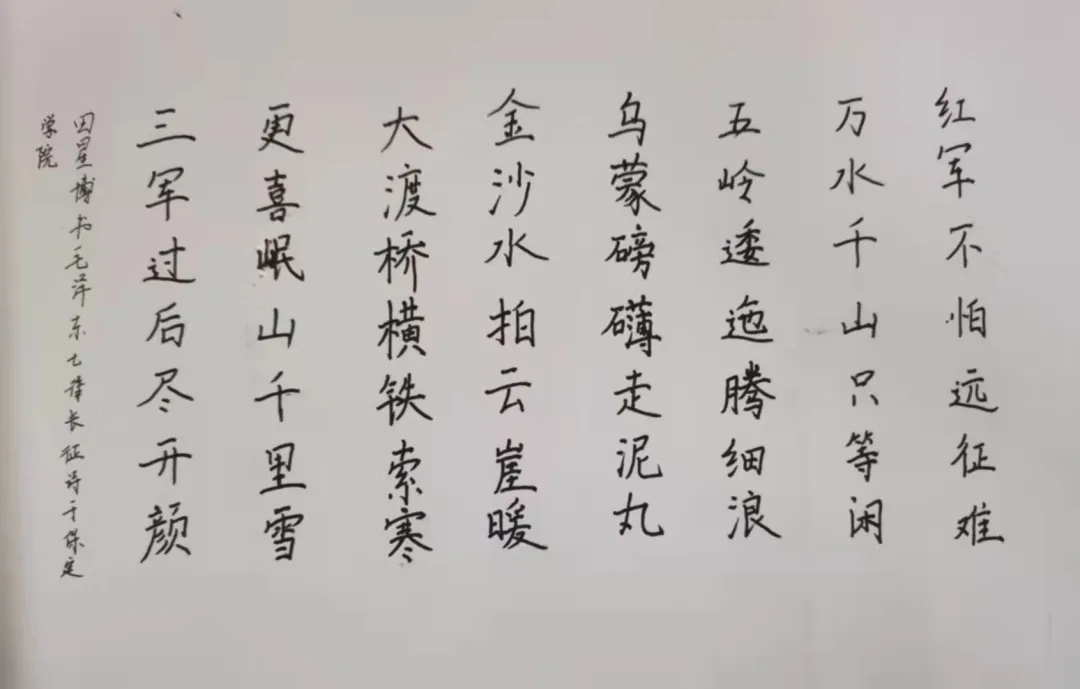 红军不怕远征难
万水千山只等闲
五岭逶迤腾细浪
乌蒙磅礴走泥丸
金沙水拍云崖暖
大渡桥横铁索寒
更喜岷山千里雪
三军过后尽开颜
田星博书毛泽东七律长征诗于保定
学院